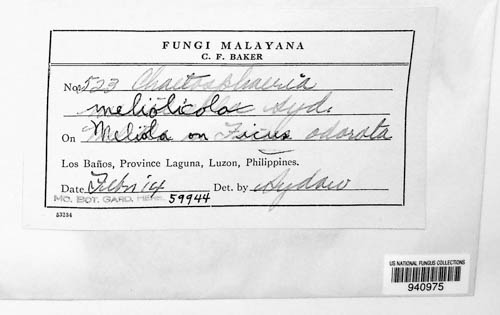 FUNGI MALAYANA
C. F. BAKER
No. 523 Chaetosphaeria
meliolicola Syd.
On Meliola on Ficus odorata
Los Baños, Province Laguna, Luzon, Philippines.
Date Feb. 14 Det. by Sydow
MO. BOT. GARD. HERB. 59944
53234
US NATIONAL FUNGUS COLLECTIONS
940975